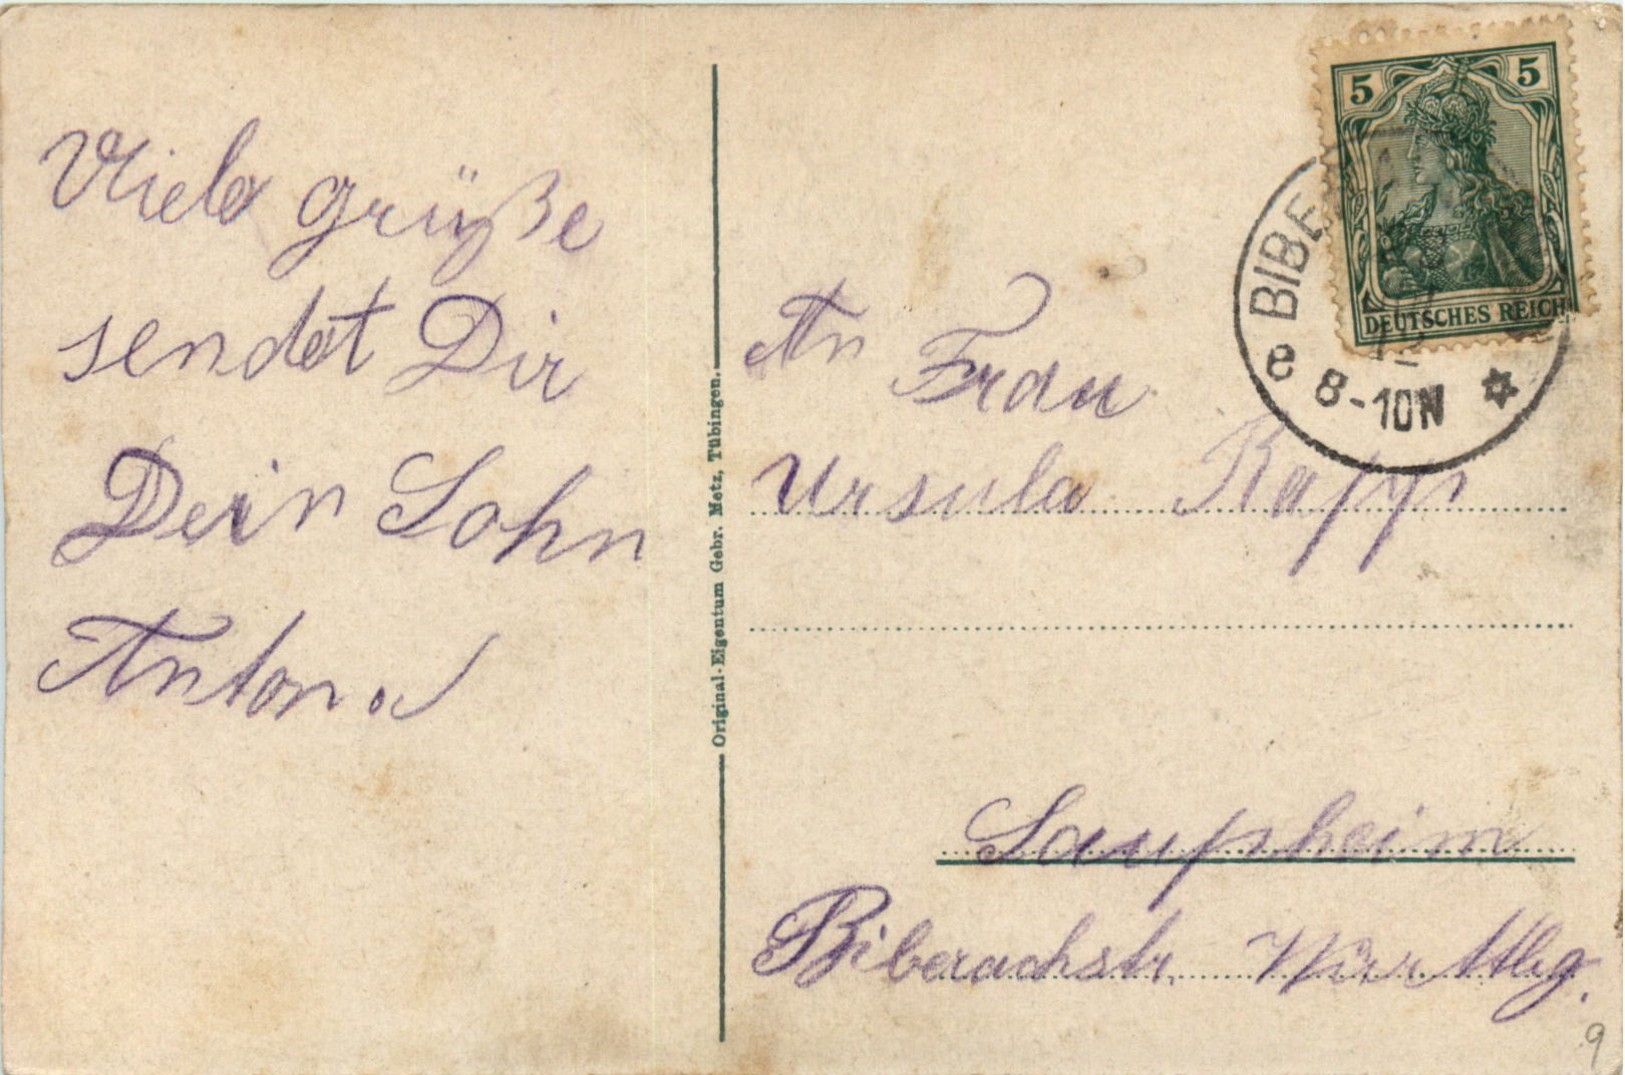 Viele grüße
sendet Dir
Dein Sohn
Anton.
Original-Eigentum Gebr. Metz, Tübingen.
5 5
DEUTSCHES REICH
BIBE
12
e 8-10N
An Frau
Ursula Rapp
Laupheim
Biberachstr. Württbg.
9